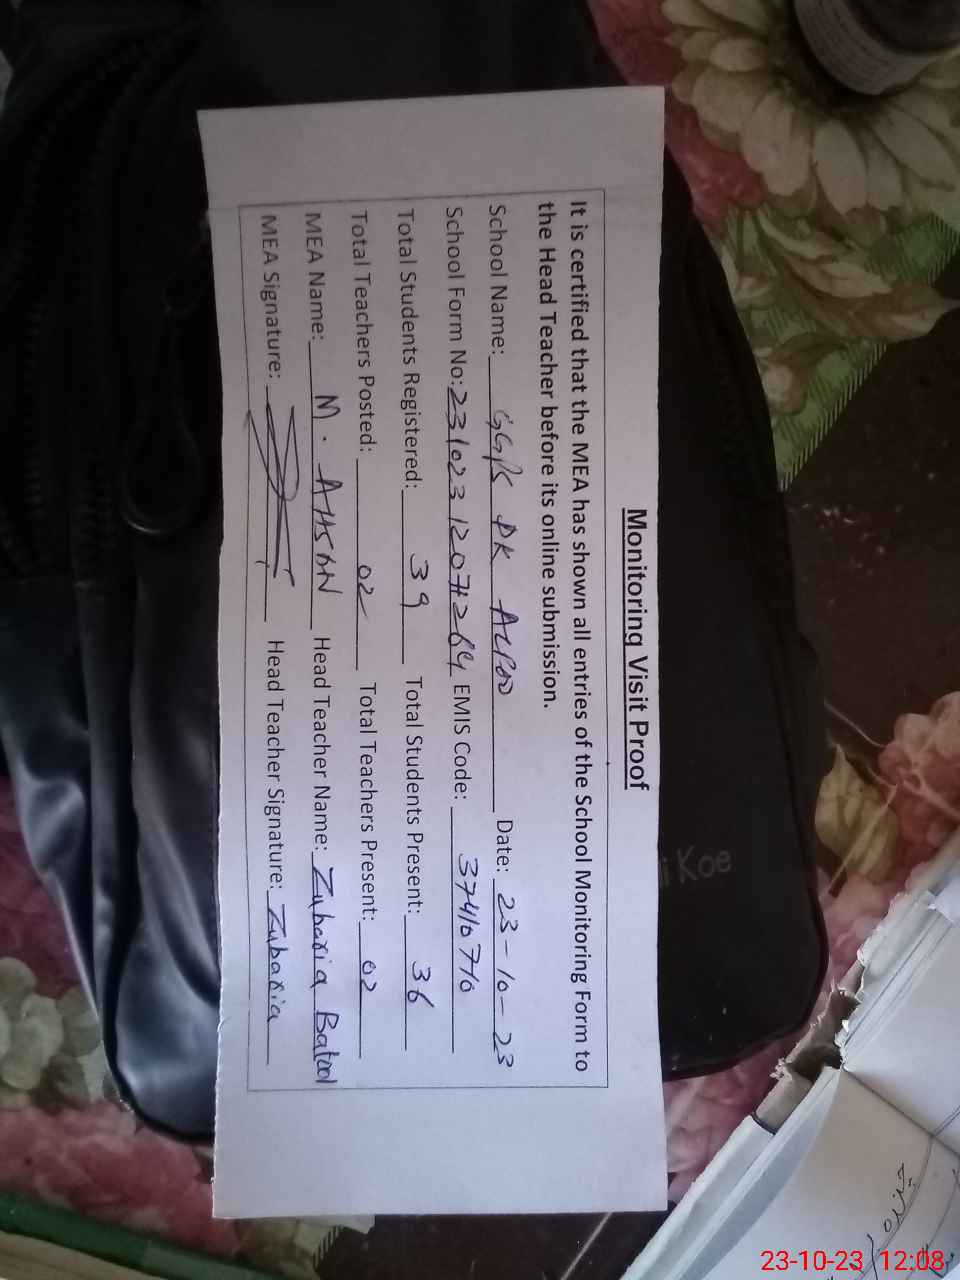 Monitoring Visit Proof
It is certified that the MEA has shown all entries of the School Monitoring Form to
the Head Teacher before its online submission.
School Name: GGPS DK Date: 23-10-23
School Form No: EMIS Code: 37410710
Total Students Registered: 39 Total Students Present: 36
Total Teachers Posted: 02 Total Teachers Present: 02
MEA Name: M. AHSAN Head Teacher Name: Zubaria Batool
MEA Signature: Head Teacher Signature: Zubaria
Koe
23-10-23 12:08